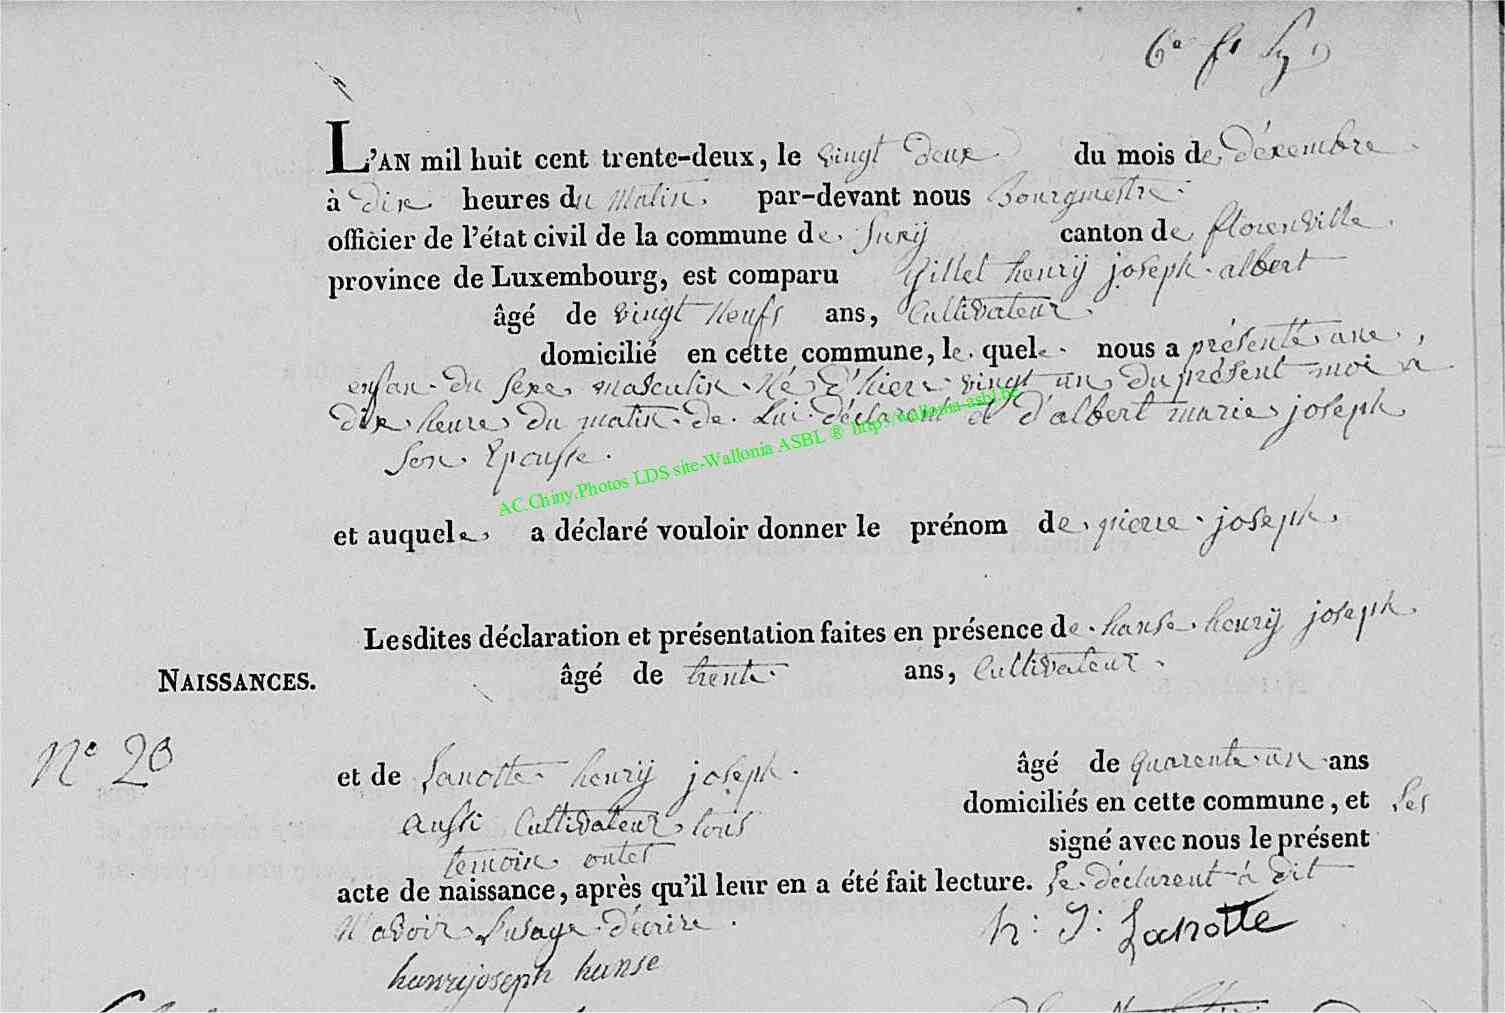 L'AN mil huit cent trente-deux, le vingt deux du mois de décembre
à dix heures du matin. par-devant nous Bourgmestre
officier de l'état civil de la commune de Suxij canton de florenville
province de Luxembourg, est comparu Gillet henrij joseph albert
âgé de vingt neufs ans, Cultivateur
domicilié en cette commune, le quel nous a présenté une
enfan du sexe masculin né d'hier vingt un du présent moi a
dix heure du matin de lui déclarent et d'albert marie joseph
son Epousse.
AC.Chiny.Photos LDS site-Wallonia ASBL ® http://wallonia-asbl.be
et auquel a déclaré vouloir donner le prénom de pierre joseph.
Lesdites déclaration et présentation faites en présence de hanse henrij joseph
NAISSANCES. âgé de trente ans, Cultivateur
Nº 20
et de Lanotte henrij joseph. âgé de quarente un ans
aussi Cultivateur tous domiciliés en cette commune, et les
temoin ontet signé avec nous le présent
acte de naissance, après qu'il leur en a été fait lecture. le déclarent à dit
n'avoir l'usage décrire.
h: J: Lanotte
henryjoseph hanse